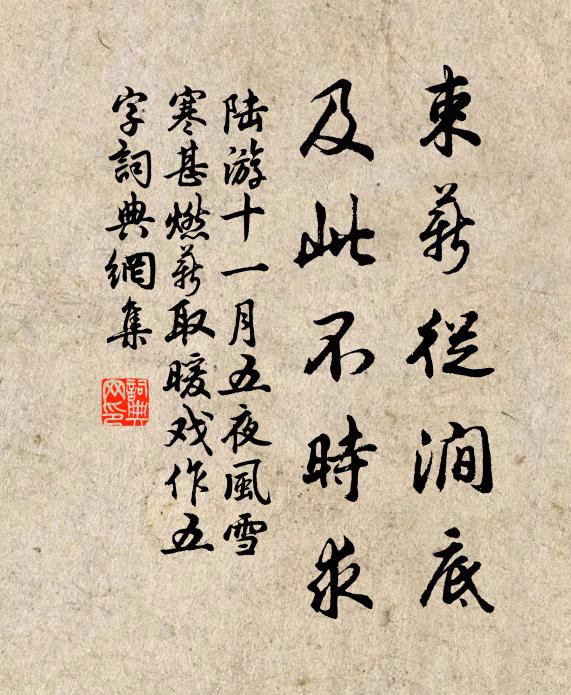 束薪從澗底
及此不時求
陆游十一月五夜風雪
寒甚燃薪取暖戏作五
字詞典網集
詞典网印